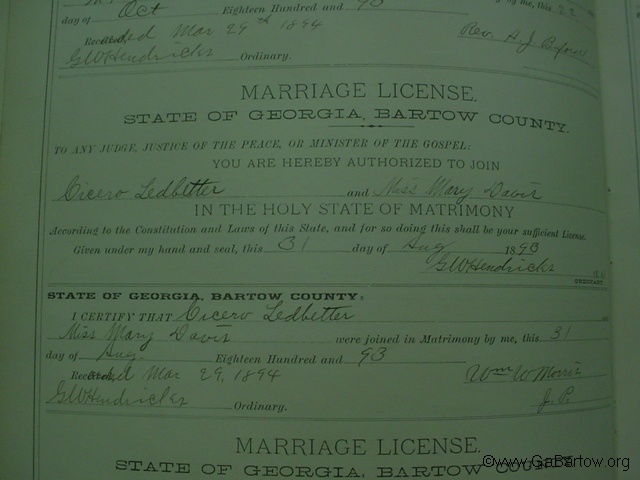 day of Oct Eighteen Hundred and 93 by me, this 22
Recorded Mar 29th 1894 Rev. A. J.
GWHendricks Ordinary.
MARRIAGE LICENSE.
STATE OF GEORGIA, BARTOW COUNTY.
TO ANY JUDGE, JUSTICE OF THE PEACE, OR MINISTER OF THE GOSPEL:
YOU ARE HEREBY AUTHORIZED TO JOIN
Cicero Ledbetter and Miss Mary Davis
IN THE HOLY STATE OF MATRIMONY
According to the Constitution and Laws of this State, and for so doing this shall be your sufficient License.
Given under my hand and seal, this 31 day of Aug 1893
GWHendricks
ORDINARY.
STATE OF GEORGIA, BARTOW COUNTY:
I CERTIFY THAT Cicero Ledbetter
Miss Mary Davis were joined in Matrimony by me, this 31
day of Aug. Eighteen Hundred and 93
Recorded Mar 29, 1894 Wm W Morris
GWHendricks Ordinary. J. P.
MARRIAGE LICENSE.
STATE OF GEORGIA, BARTOW COUNTY
©www.GaBartow.org